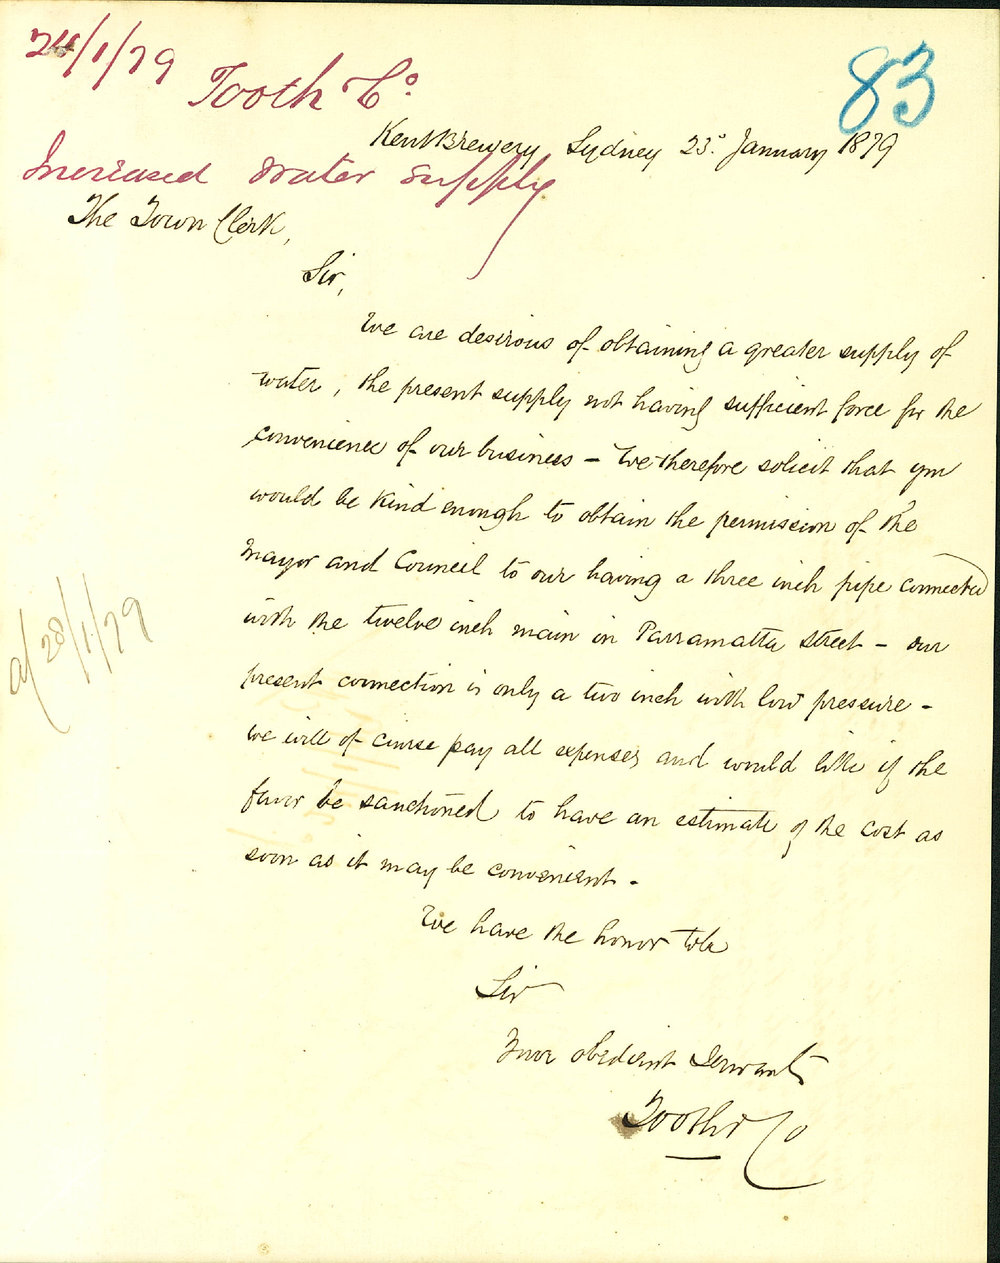 24/1/79
83
Tooth & Co.
Kent Brewery Sydney 23d January 1879
Increased Water Supply
The Town Clerk,
Sir,
We are desirous of obtaining a greater supply of
water, the present supply not having sufficient force for the
convenience of our business – We therefore solicit that you
would be kind enough to obtain the permission of the
Mayor and Council to our having a three inch pipe connected
with the twelve inch main in Parramatta Street – our
present connection is only a two inch with low pressure –
we will of course pay all expenses and would like if the
favor be sanctioned to have an estimate of the cost as
soon as it may be convenient –
We have the honor to be
Sir
Your obedient Servants
Tooth & Co
28/1/79